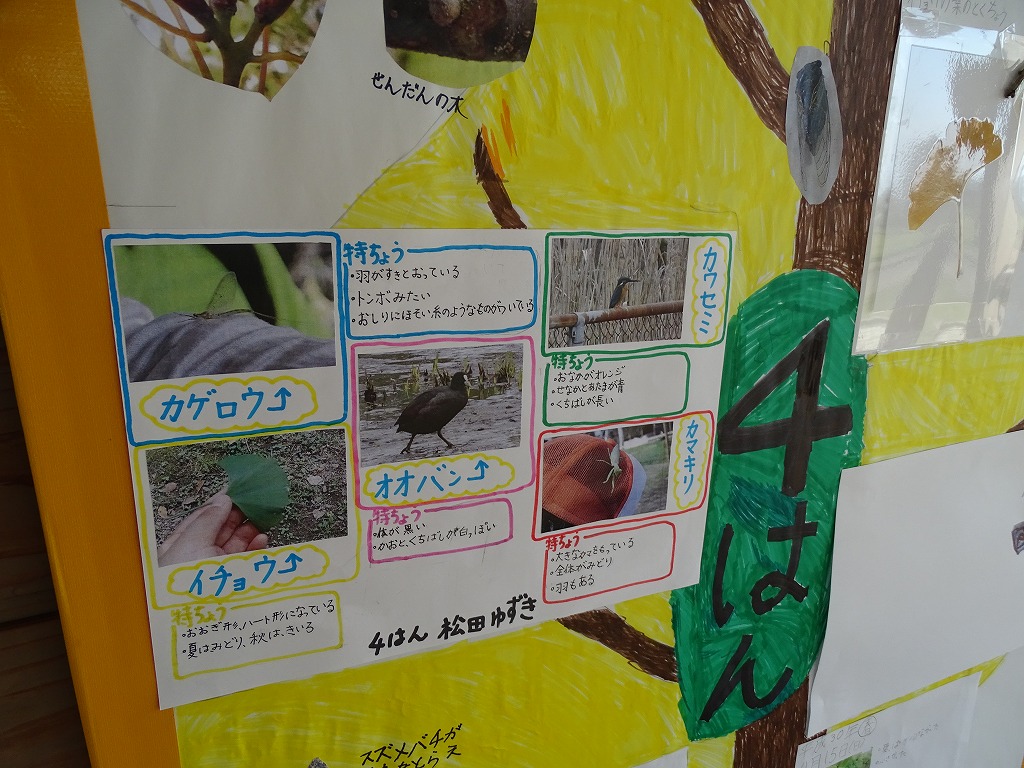 せんだんの木
特ちょう
・羽がすきとおっている
・トンボみたい
・おしりにほそい糸のようなものがついている
カゲロウ↑
カワセミ
特ちょう
・おなかがオレンジ
・せなかとあたまが青
・くちばしが長い
オオバン↑
特ちょう
・体が黒い
・かおと、くちばしが白っぽい
カマキリ
特ちょう
・大きなカマをもっている
・全体がみどり
・羽もある
イチョウ↑
特ちょう
・おおぎ形、ハート形になっている
・夏はみどり、秋は、きいろ
4はん 松田ゆずき
4はん
スズメバチガ